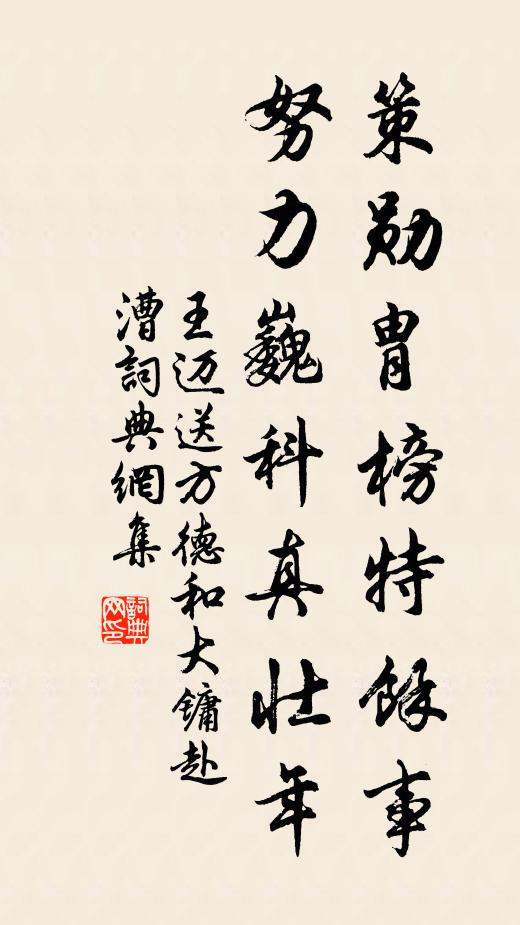 策勋胄榜特馀事
努力巍科真壮年
王迈送方德和大镛赴
漕詞典網集
詞典网印